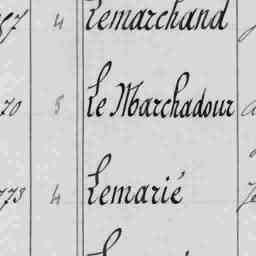 57 4 Lemarchand
70 8 Le Marchadour
773 4 Lemarié